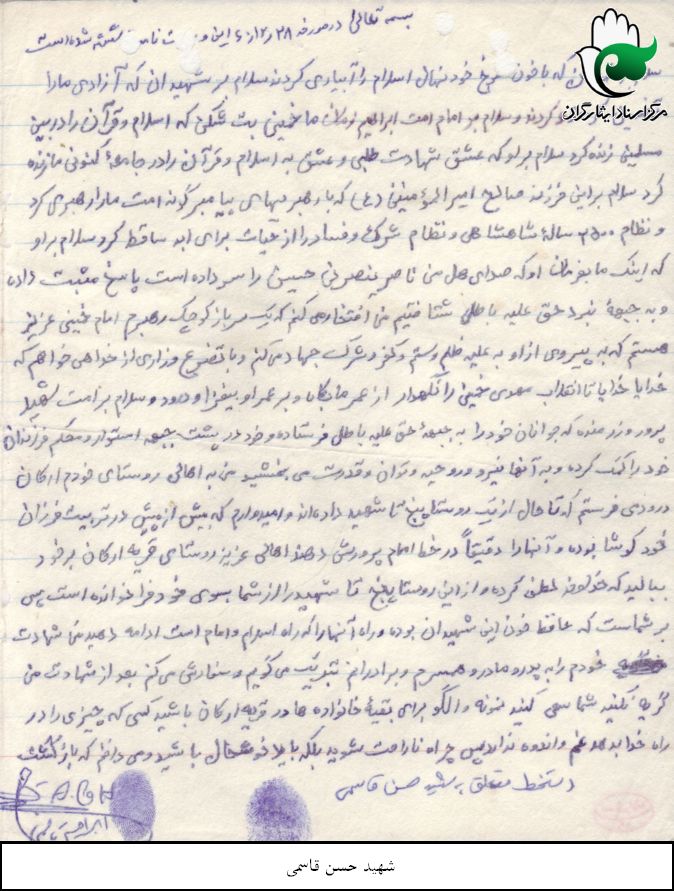 بسمه تعالی در مورخه ۲۸
مرکز اسناد ایثارگران
که با خون سرخ خود نهال اسلام را آبیاری کردند سلام بر شهیدان که آزادی ما را
کردند و سلام بر امام امت ابراهیم زمان ما خمینی بت شکن که اسلام و قرآن را در بین
مسلمین زنده کرد سلام بر او که عشق شهادت طلبی و عشق به اسلام و قرآن را در جامعه کنونی ما زنده
کرد سلام بر این فرزند صالح امیرالمؤمنین (ع) که با رهبریهای پیامبر گونه امت ما را رهبری کرد
و نظام ۲۵۰۰ ساله شاهنشاهی و نظام شرک و فساد را از حیات برای ابد ساقط کرد سلام بر او
که اینک ما بفرمان او که صدای هل من ناصر ینصرنی حسین را سر داده است پاسخ مثبت داده
و به جبهه نبرد حق علیه باطل شتافتیم من افتخار می کنم که یک سرباز کوچک رهبرم امام خمینی عزیز
هستم که به پیروی از او به علیه ظلم و ستم و کفر و شرک جهاد می کنم و با تضرع و زاری از خدا می خواهم که
خدایا خدایا تا انقلاب مهدی خمینی را نگهدار از عمر ما بکاه و بر عمر او بیفزا و درود و سلام بر امت شهید
پرور و رزمنده که جوانان خود را به جبهه حق علیه باطل فرستاده و خود در پشت جبهه استوار و محکم فرزندان
خود را کمک کرده و به آنها نیرو و روحیه و توان و قدرت می بخشید من به اهالی روستای خودم ارکان
درود می فرستم که تا حال از یک روستا پنج تا شهید داده اند و امیدوارم که بیش از پیش در تربیت فرزندان
خود کوشا بوده و آنها را دقیقاً در خط امام پرورش دهند اهالی عزیز روستای قریه ارکان بر خود
ببالید که خداوند لطف کرده و از این روستا پنج تا شهید را از شما بسوی خود فرا خوانده است پس
بر شماست که حافظ خون این شهیدان بوده و راه آنها را که راه اسلام و امام است ادامه دهید من شهادت
خودم را به پدر و مادر و همسرم و برادرانم تبریک می گویم و سفارش می کنم بعد از شهادت من
گریه نکنید شما سعی کنید نمونه و الگو برای بقیه خانواده ها در قریه ارکان باشید کسی که چیزی را در
راه خدا بدهد غم و اندوه ندارد پس چرا ناراحت شوید بلکه باید خوشحال باشید و می دانم که بازگشت
دستخط متعلق به شهید حسن قاسمی
شهید حسن قاسمی